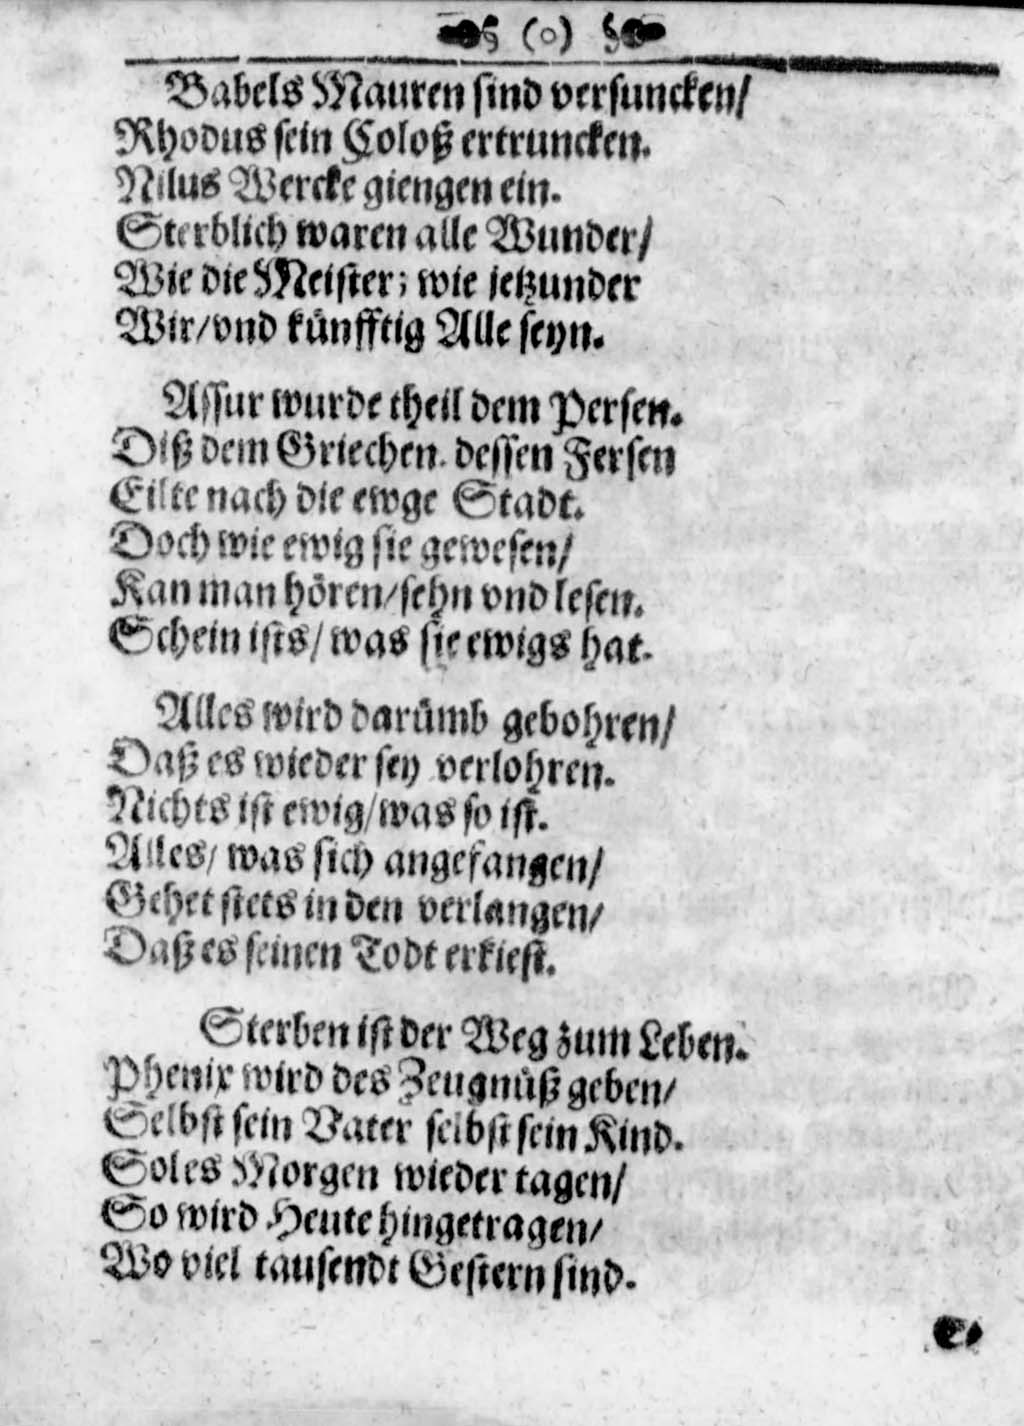 (o)
Babels Mauren sind versuncken/
Rhodus sein Coloß ertruncken.
Nilus Wercke giengen ein.
Sterblich waren alle Wunder/
Wie die Meister; wie jetzunder
Wir/vnd künfftig Alle seyn.
Assur wurde theil dem Persen.
Diß dem Griechen. dessen Fersen
Eilte nach die ewge Stadt.
Doch wie ewig sie gewesen/
Kan man hören/sehn vnd lesen.
Schein ists/was sie ewigs hat.
Alles wird darümb gebohren/
Daß es wieder sey verlohren.
Nichts ist ewig/was so ist.
Alles/ was sich angefangen/
Gehet stets in den verlangen/
Daß es seinen Todt erkiest.
Sterben ist der Weg zum Leben.
Phenix wird des Zeugnüß geben/
Selbst sein Vater selbst sein Kind.
Sol es Morgen wieder tagen/
So wird Heute hingetragen/
Wo viel tausendt Gestern sind.